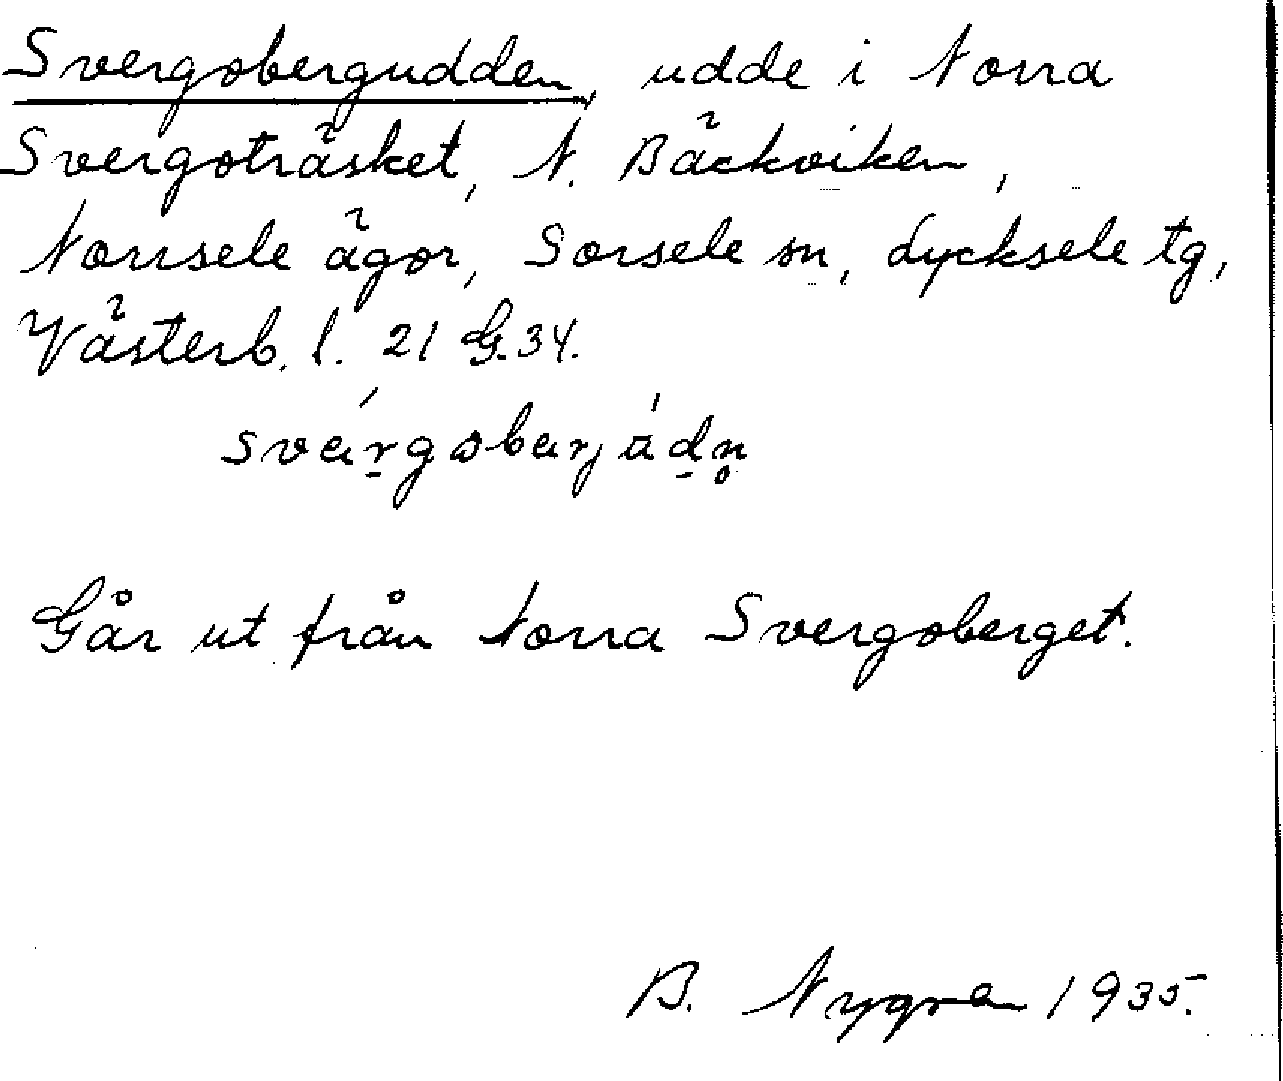 Svergobergudden, udde i Norra
Svergoträsket, N. Bäckviken,
Norrsele ägor, Sorsele sn, Lycksele tg,
Västerb. l. 21 G. 34.
Går ut från Norra Svergoberget.
B. Nygren 1935.